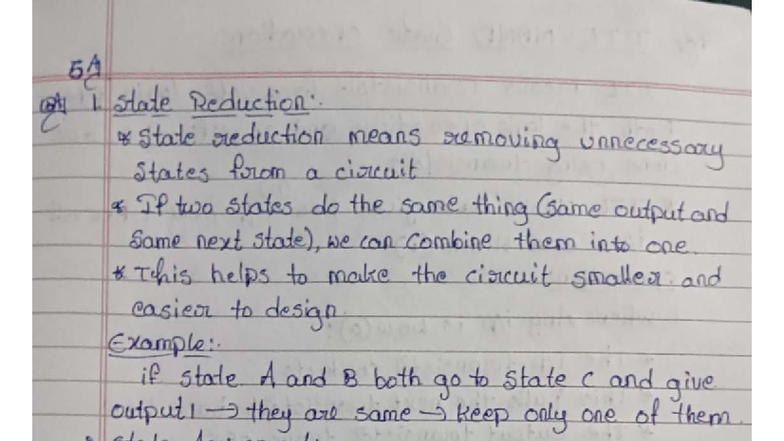 5A
1. State Reduction:-
* State reduction means removing unnecessary
states from a circuit
* If two states do the same thing (same output and
same next state), we can combine them into one.
* This helps to make the circuit smaller and
easier to design
Example:-
if state A and B both go to state C and give
output 1 → they are same → keep only one of them.